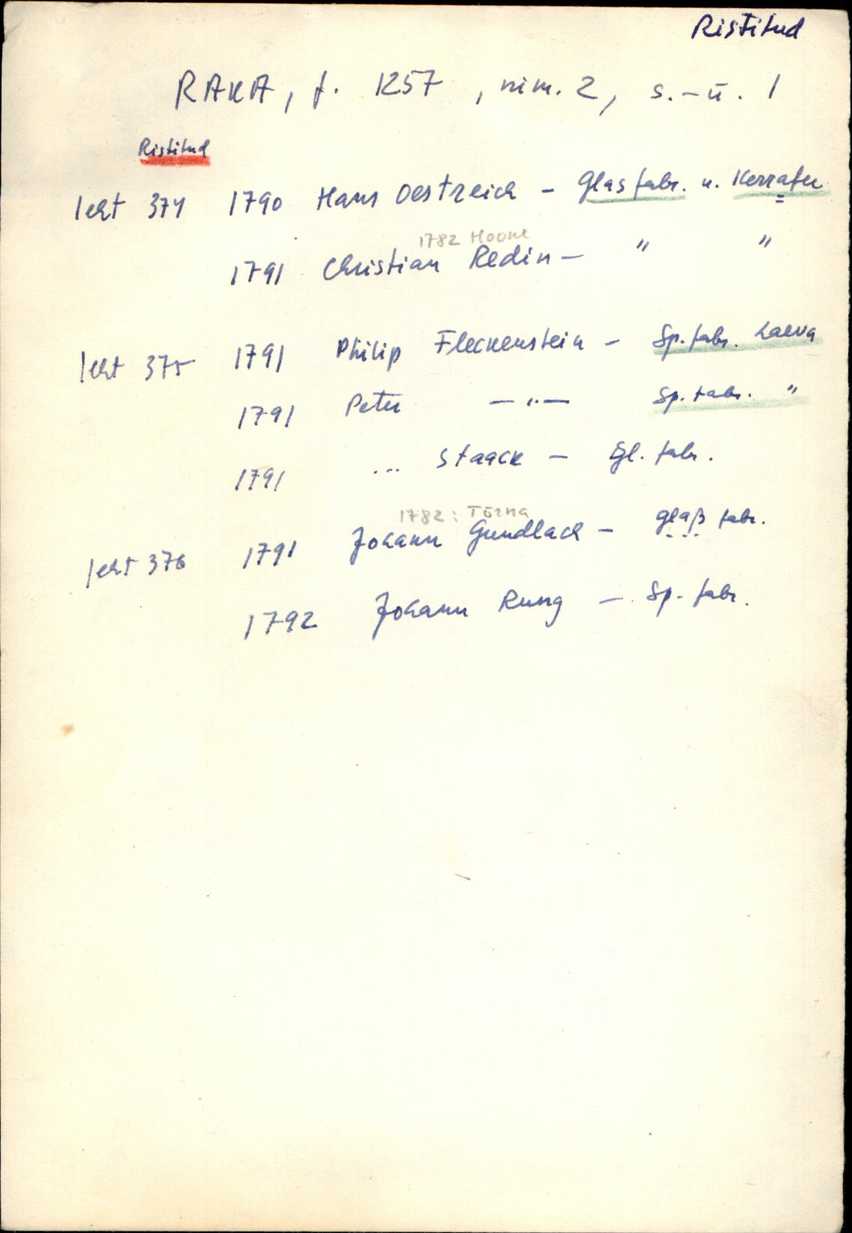 Ristitud
RAKA, f. 1257, nim. 2, s.-ü. 1
Ristitud
leht 374 1790 Hans Oestreich – Glasfabr. u. Kerrafer
1782 Hoone
1791 Christian Redin – " "
leht 375 1791 Philip Fleckenstein – Sp. fabr. Laeva
1791 Peter —"— Sp. fabr. "
1791 ... Staack – fabr.
1782: Tõrna
leht 376 1791 Johann Gundlach – glaß fabr.
1792 Johann Rung – Sp. fabr.